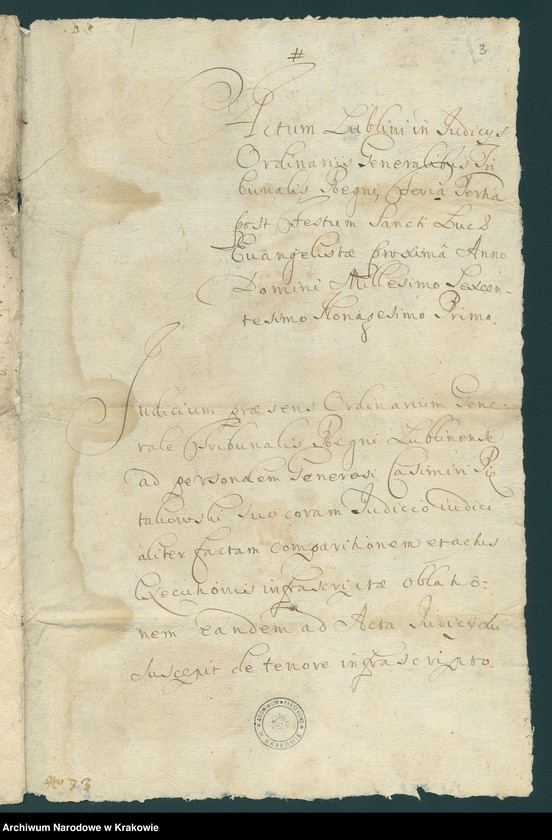 #
3
Actum Lublini in Judicÿs
Ordinariis Generalibus Tri
bunalis Regni, Feria Tertia
post Festum Sancti Lucæ
Euangelistæ proximâ Anno
Domini Millesimo Sexcen-
tesimo Nonagesimo Primo.
Judicium præsens Ordinarium Gene-
rale Tribunalis Regni Lublinense
ad personalem Generosi Casimiri Pię
takowski suo coram Judicio iudici
aliter factam comparitionem et actus
Executionis infrascriptæ oblatio-
nem eandem ad Acta Judicÿ sui
suscepit de tenore infrascripto.
ARCHIWUM PAŃSTWOWE
W KRAKOWIE
Archiwum Narodowe w Krakowie